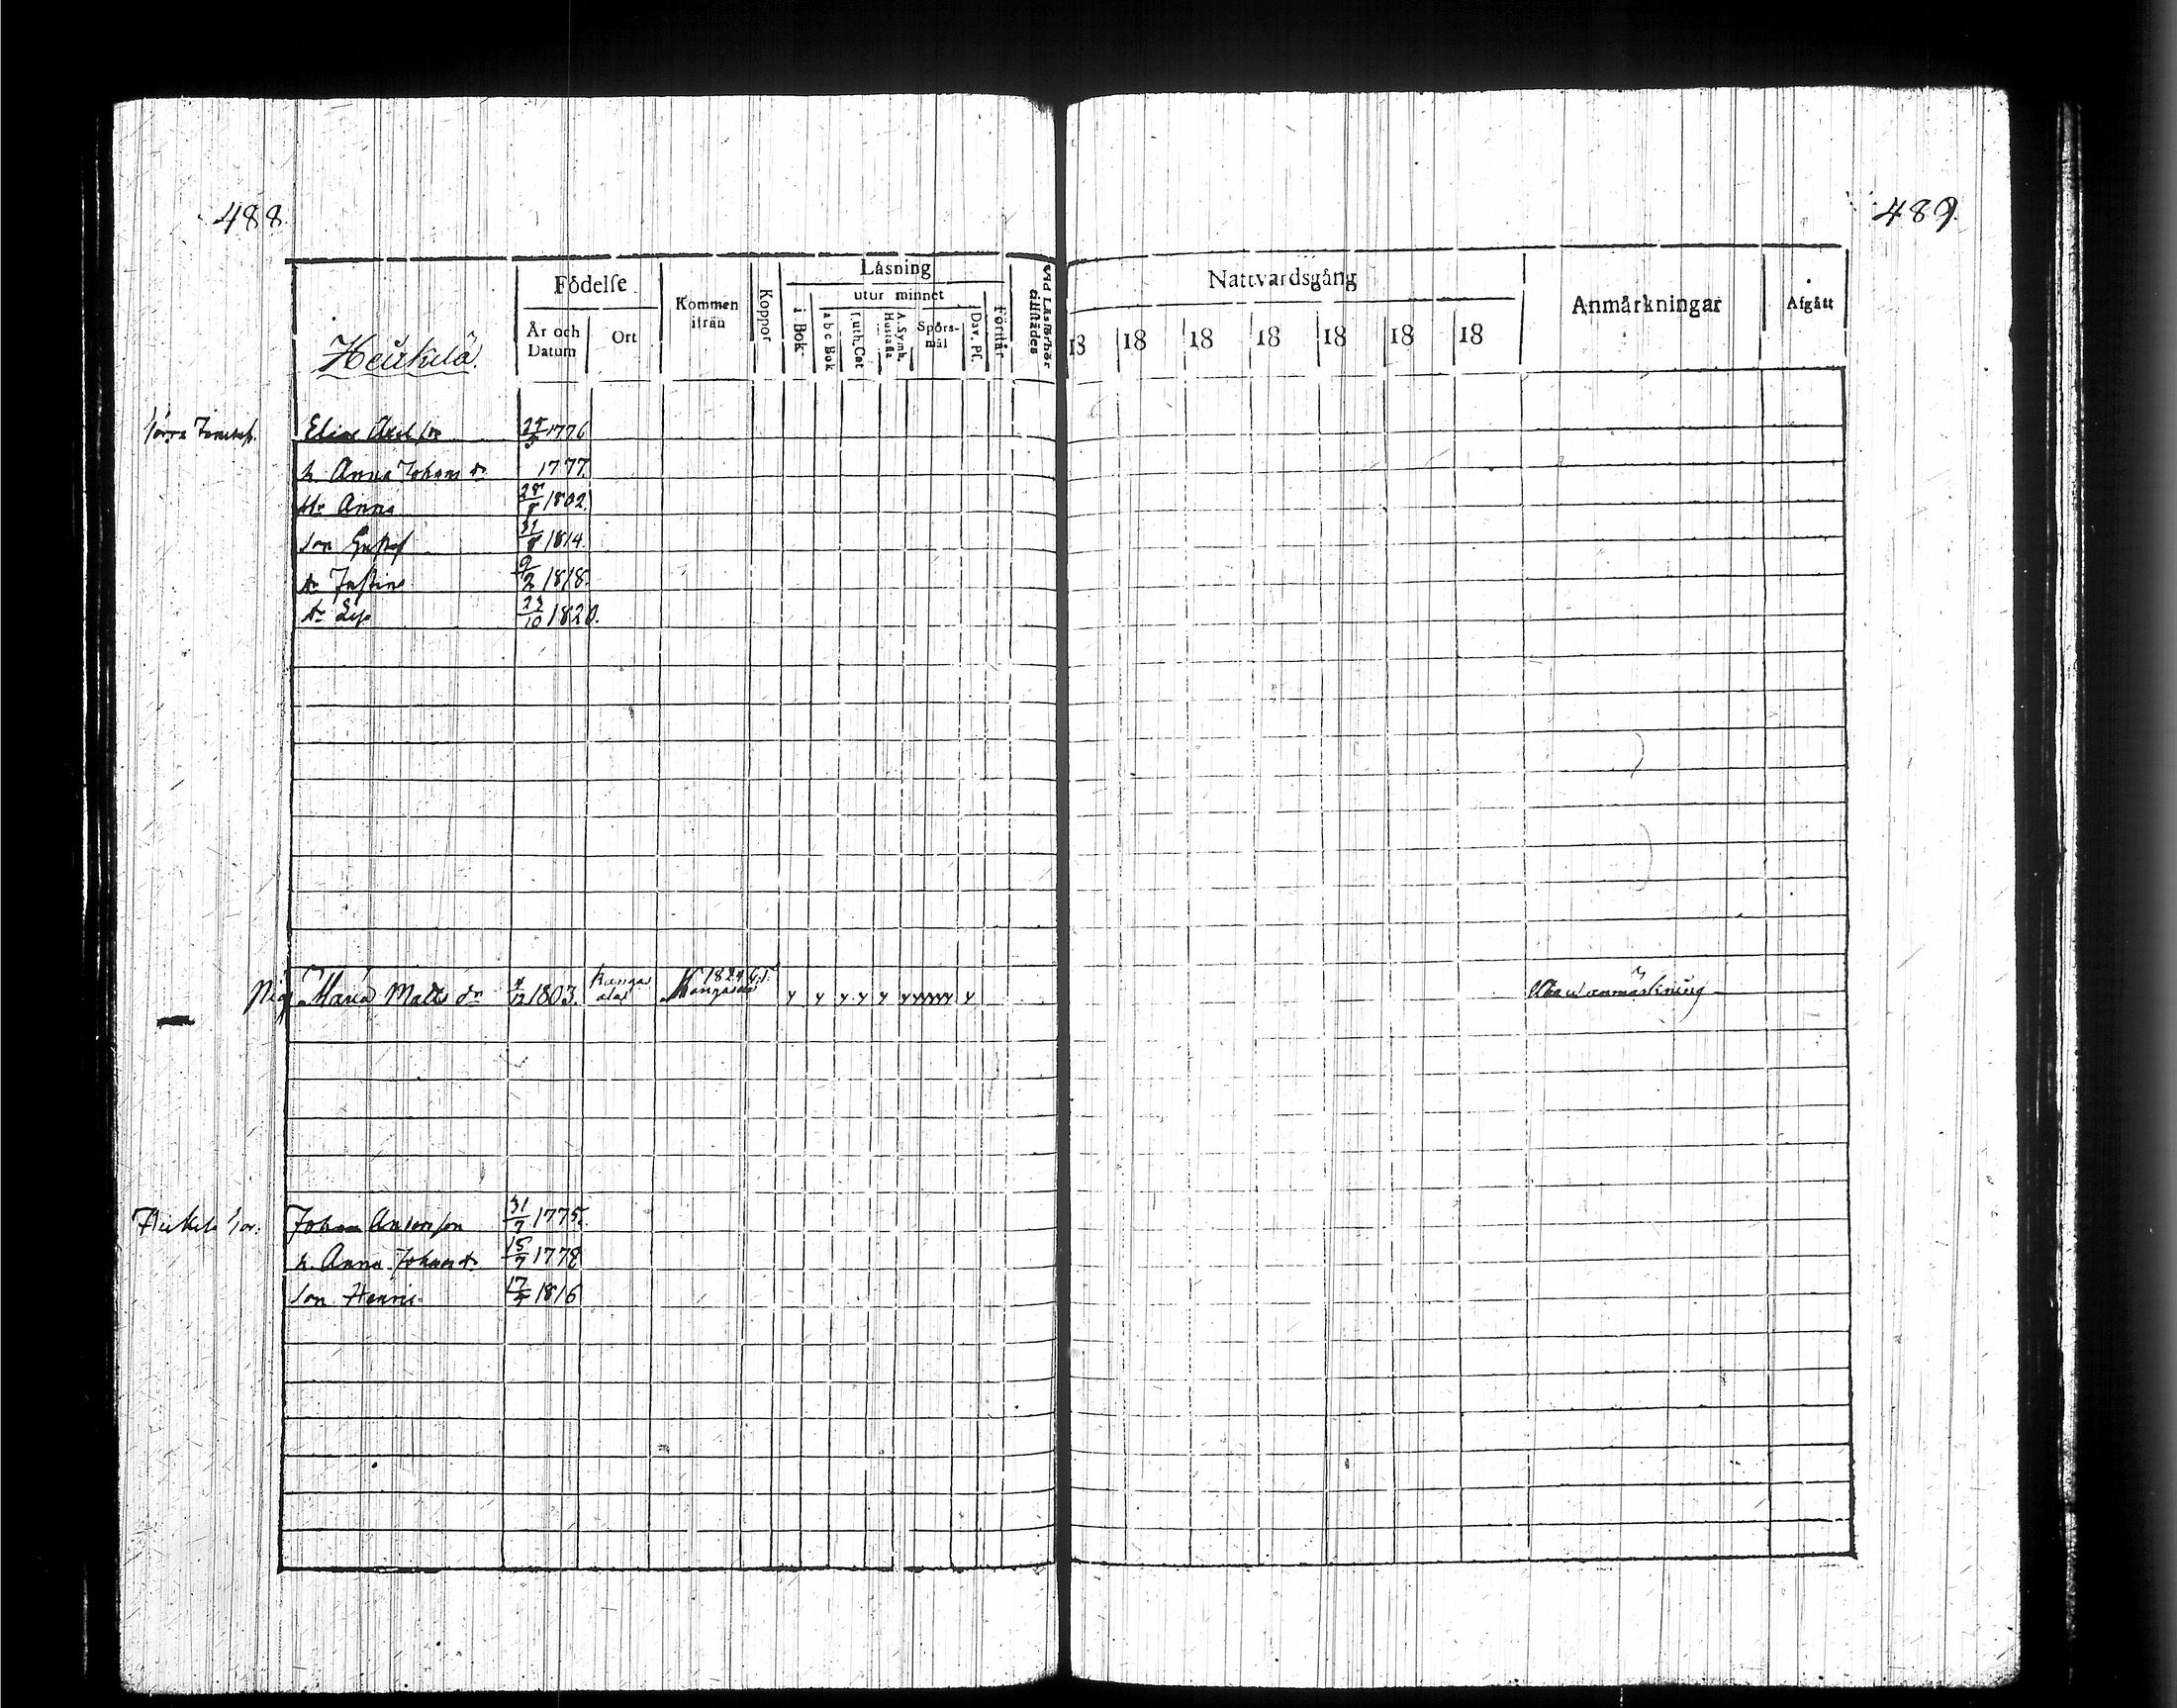 488.
489
Födelſe
År och Datum
Ort
Kommen ifrån
Koppor
Läsning
utur minnet
i Bok
a b c Bok
Luth. Cat
A. Symb. Hustafla
Spörsmål
Dav. Pſ.
Förſtår
Vid Läsförhör tillſtädes
Nattvardsgång
18 18 18 18 18 18 18
Anmärkningar
Afgått
Heikilä.
Elias Axelſon 1776
h. Anna Johans dr 1777.
dr Anna 28/8 1802.
son Gustaf 31/8 1814.
dr Justina 9/2 1818.
dr Lisa 23/10 1820.
Pig Maria Matts dr 4/12 1803. Kangasala 1824 Kangasala y y y y y yyyyy y Utan anmärkning
Johan Andersson 31/7 1775.
h. Anna Johans dr 15/7 1778
son Henric 1816